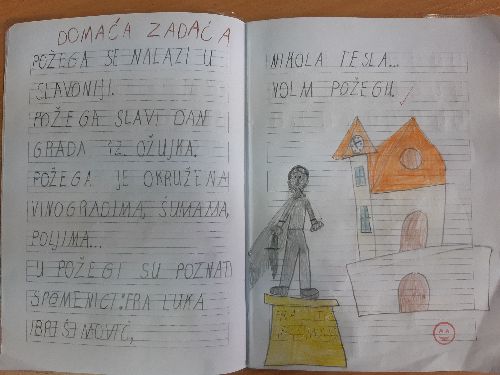 DOMAĆA ZADAĆA
POŽEGA SE NALAZI U
SLAVONIJI.
POŽEGA SLAVI DAN
GRADA 12. OŽUJKA.
POŽEGA JE OKRUŽENA
VINOGRADIMA, ŠUMAMA,
POLJIMA...
U POŽEGI SU POZNATI
SPOMENICI: FRA LUKA
IBRIŠIMOVIĆ,
NIKOLA TESLA...
VOLIM POŽEGU.